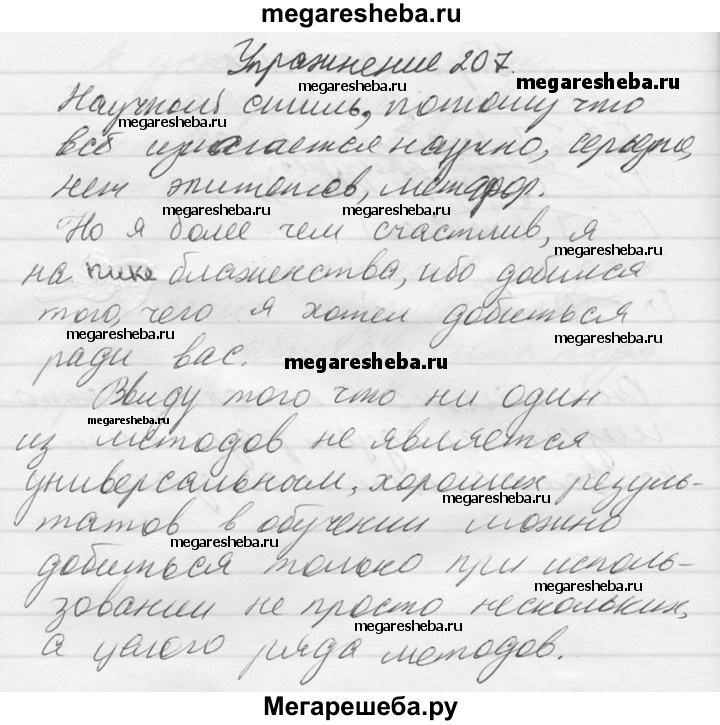 megaresheba.ru
Упражнение 207.
megaresheba.ru
Научный стиль, потому что
megaresheba.ru
всё излагается научно, серьёзно,
нет эпитетов, метафор.
megaresheba.ru megaresheba.ru
Но я более чем счастлив, я
megaresheba.ru
на пике блаженства, ибо добился
того, чего я хотел добиться
megaresheba.ru megaresheba.ru
ради вас.
megaresheba.ru
Ввиду того что ни один
megaresheba.ru
из методов не является
универсальным, хороших резуль-
megaresheba.ru
татов в обучении можно
megaresheba.ru
добиться только при исполь-
megaresheba.ru
зовании не просто нескольких,
megaresheba.ru
а целого ряда методов.
Мегарешеба.ру